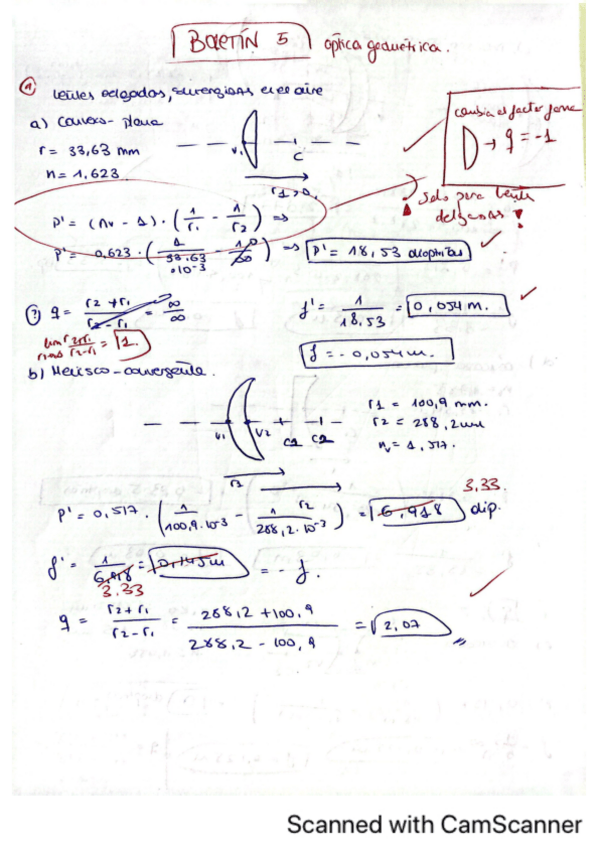 BOLETÍN 5 óptica geométrica.
1 Lentes delgadas, sumergidas en el aire
a) Convexo-plana
r = 33,63 mm
n = 1.623
V1 C
r1 > 0
cambia el factor forma
→ q = -1
Solo para lente delgadas!
P' = (nv - 1) · (1/r1 - 1/r2) ⇒
P' = 0.623 · (1/33.63 · 10^-3 - 1/∞) ⇒ P' = 18,53 dioptrías
(?) q = r2 + r1 / r2 - r1 = ∞/∞
lim r2+r1 / r2-r1 = 1.
f' = 1/18.53 = 0,054 m.
f = - 0,054 m.
b) Menisco-convergente.
V1 V2 C1 C2
r1 = 100,9 mm.
r2 = 288,2 mm
n = 1,517.
r2
r2
3,33.
P' = 0,517 · (1/100,9·10^-3 - 1/288,2·10^-3) = 6,918 dip.
f' = 1/6,918 = 0,145 m = - f.
3.33
q = r2 + r1 / r2 - r1 = 288,2 + 100,9 / 288,2 - 100,9 = 2,07
Scanned with CamScanner